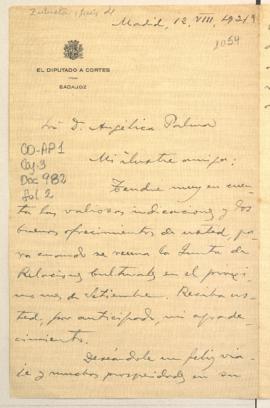 Zulueta, Luis de
Madrid, 12, VIII, 1931
1054
EL DIPUTADO A CORTES
POR
BADAJOZ
Sra. Dª. Angélica Palma
CO-AP1
Caj 3
Doc 982
fol 2
Mi ilustre amiga:
Tendré muy en cuen-
ta las valiosas indicaciones y los
buenos ofrecimientos de usted, pa-
ra cuando se reuna la Junta de
Relaciones Culturales en el próxi-
mo mes de Setiembre. Reciba us-
ted, por anticipado, mi agrade-
cimiento.
Deseándole un feliz via-
je y muchas prosperidades en su